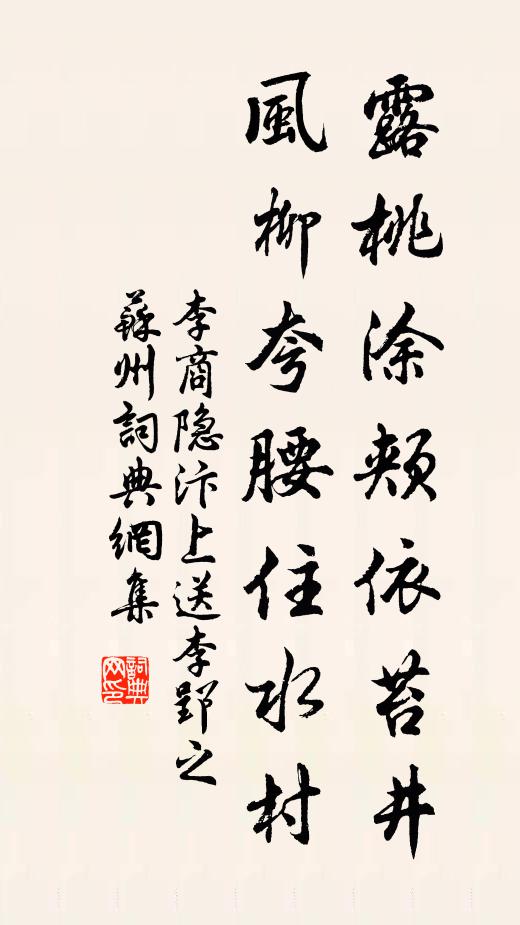 露桃涂頰依苔井
風柳夸腰住水村
李商隐汴上送李郢之
蘇州詞典網集
詞典网印